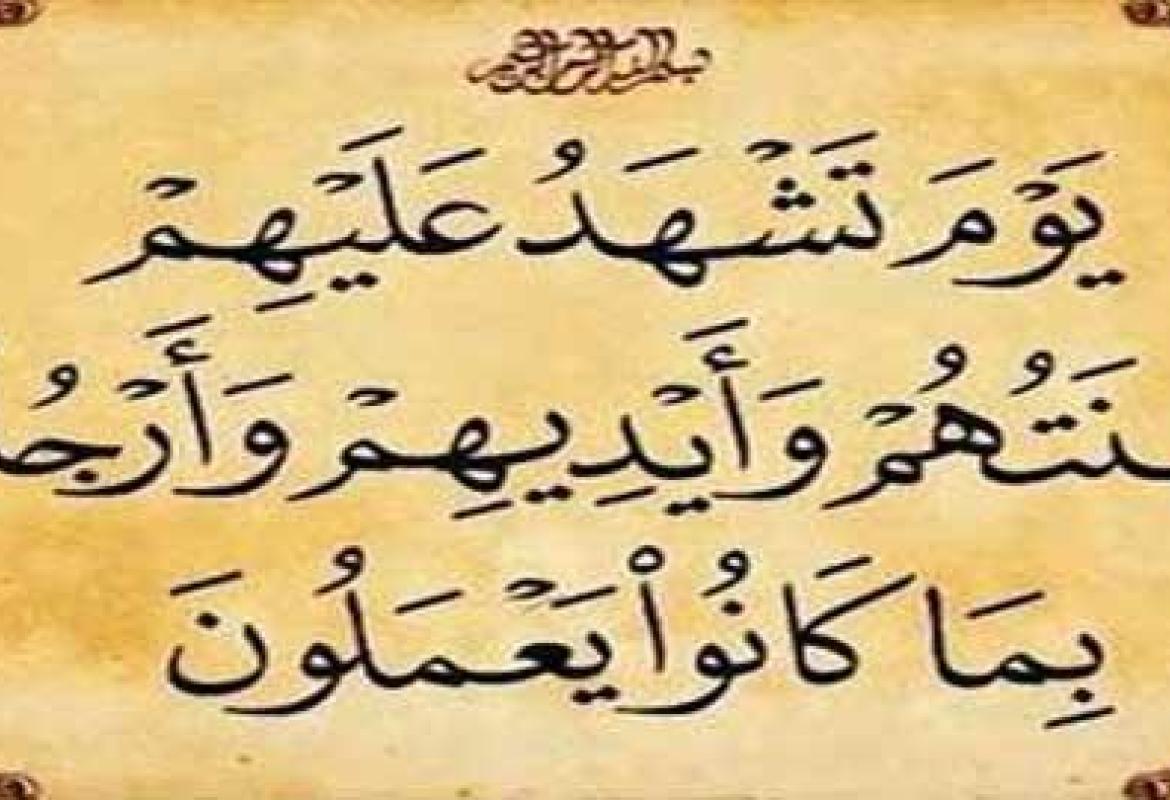 بسم الله الرحمن الرحيم
يَوْمَ تَشْهَدُ عَلَيْهِمْ
ـنَتُهُمْ وَأَيْدِيهِمْ وَأَرْجُـ
بِمَا كَانُوا۟ يَعْمَلُونَ